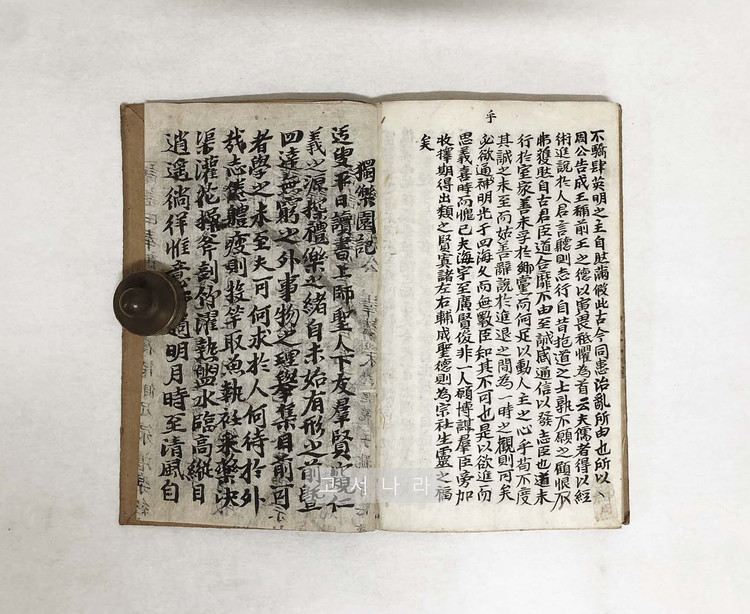 乎
不驕肆英明之主自昃滿假此古今同患治亂所由也所以
周公告成王稱前王之德以寅畏祗懼為首云夫儒者得以經
術進說於人君言聽則志行自昔抱道之士孰不願之顧恨不
弗獲耳自古君臣道合靡不由至誠感通信以發志臣也道未
行於室家善未孚於鄉黨而何足以動人主之心乎苟不度
其誠之未至而姑善辭說於進退之間為一時之觀則可矣
必欲通神明光于四海久而無斁臣知其不可也是以欲進而
思義喜時而愧己夫海宇至廣賢俊非一人願博諏羣臣旁加
收擇期得出類之賢寘諸左右輔成聖德則為宗社生靈之福
矣
獨樂園記
迃叟平日讀書上師聖人下友羣賢窺仁
義之源探禮樂之緒自未始有形之前曁
四達無窮之外事物之理擧集目前可
者學之未至夫可何求於人何待於外
哉志倦體疲則投竿取魚執衽采藥決
渠灌花操斧剖竹濯熱盥水臨高縱目
逍遙徜徉惟意適明月時至清風自
고서나라